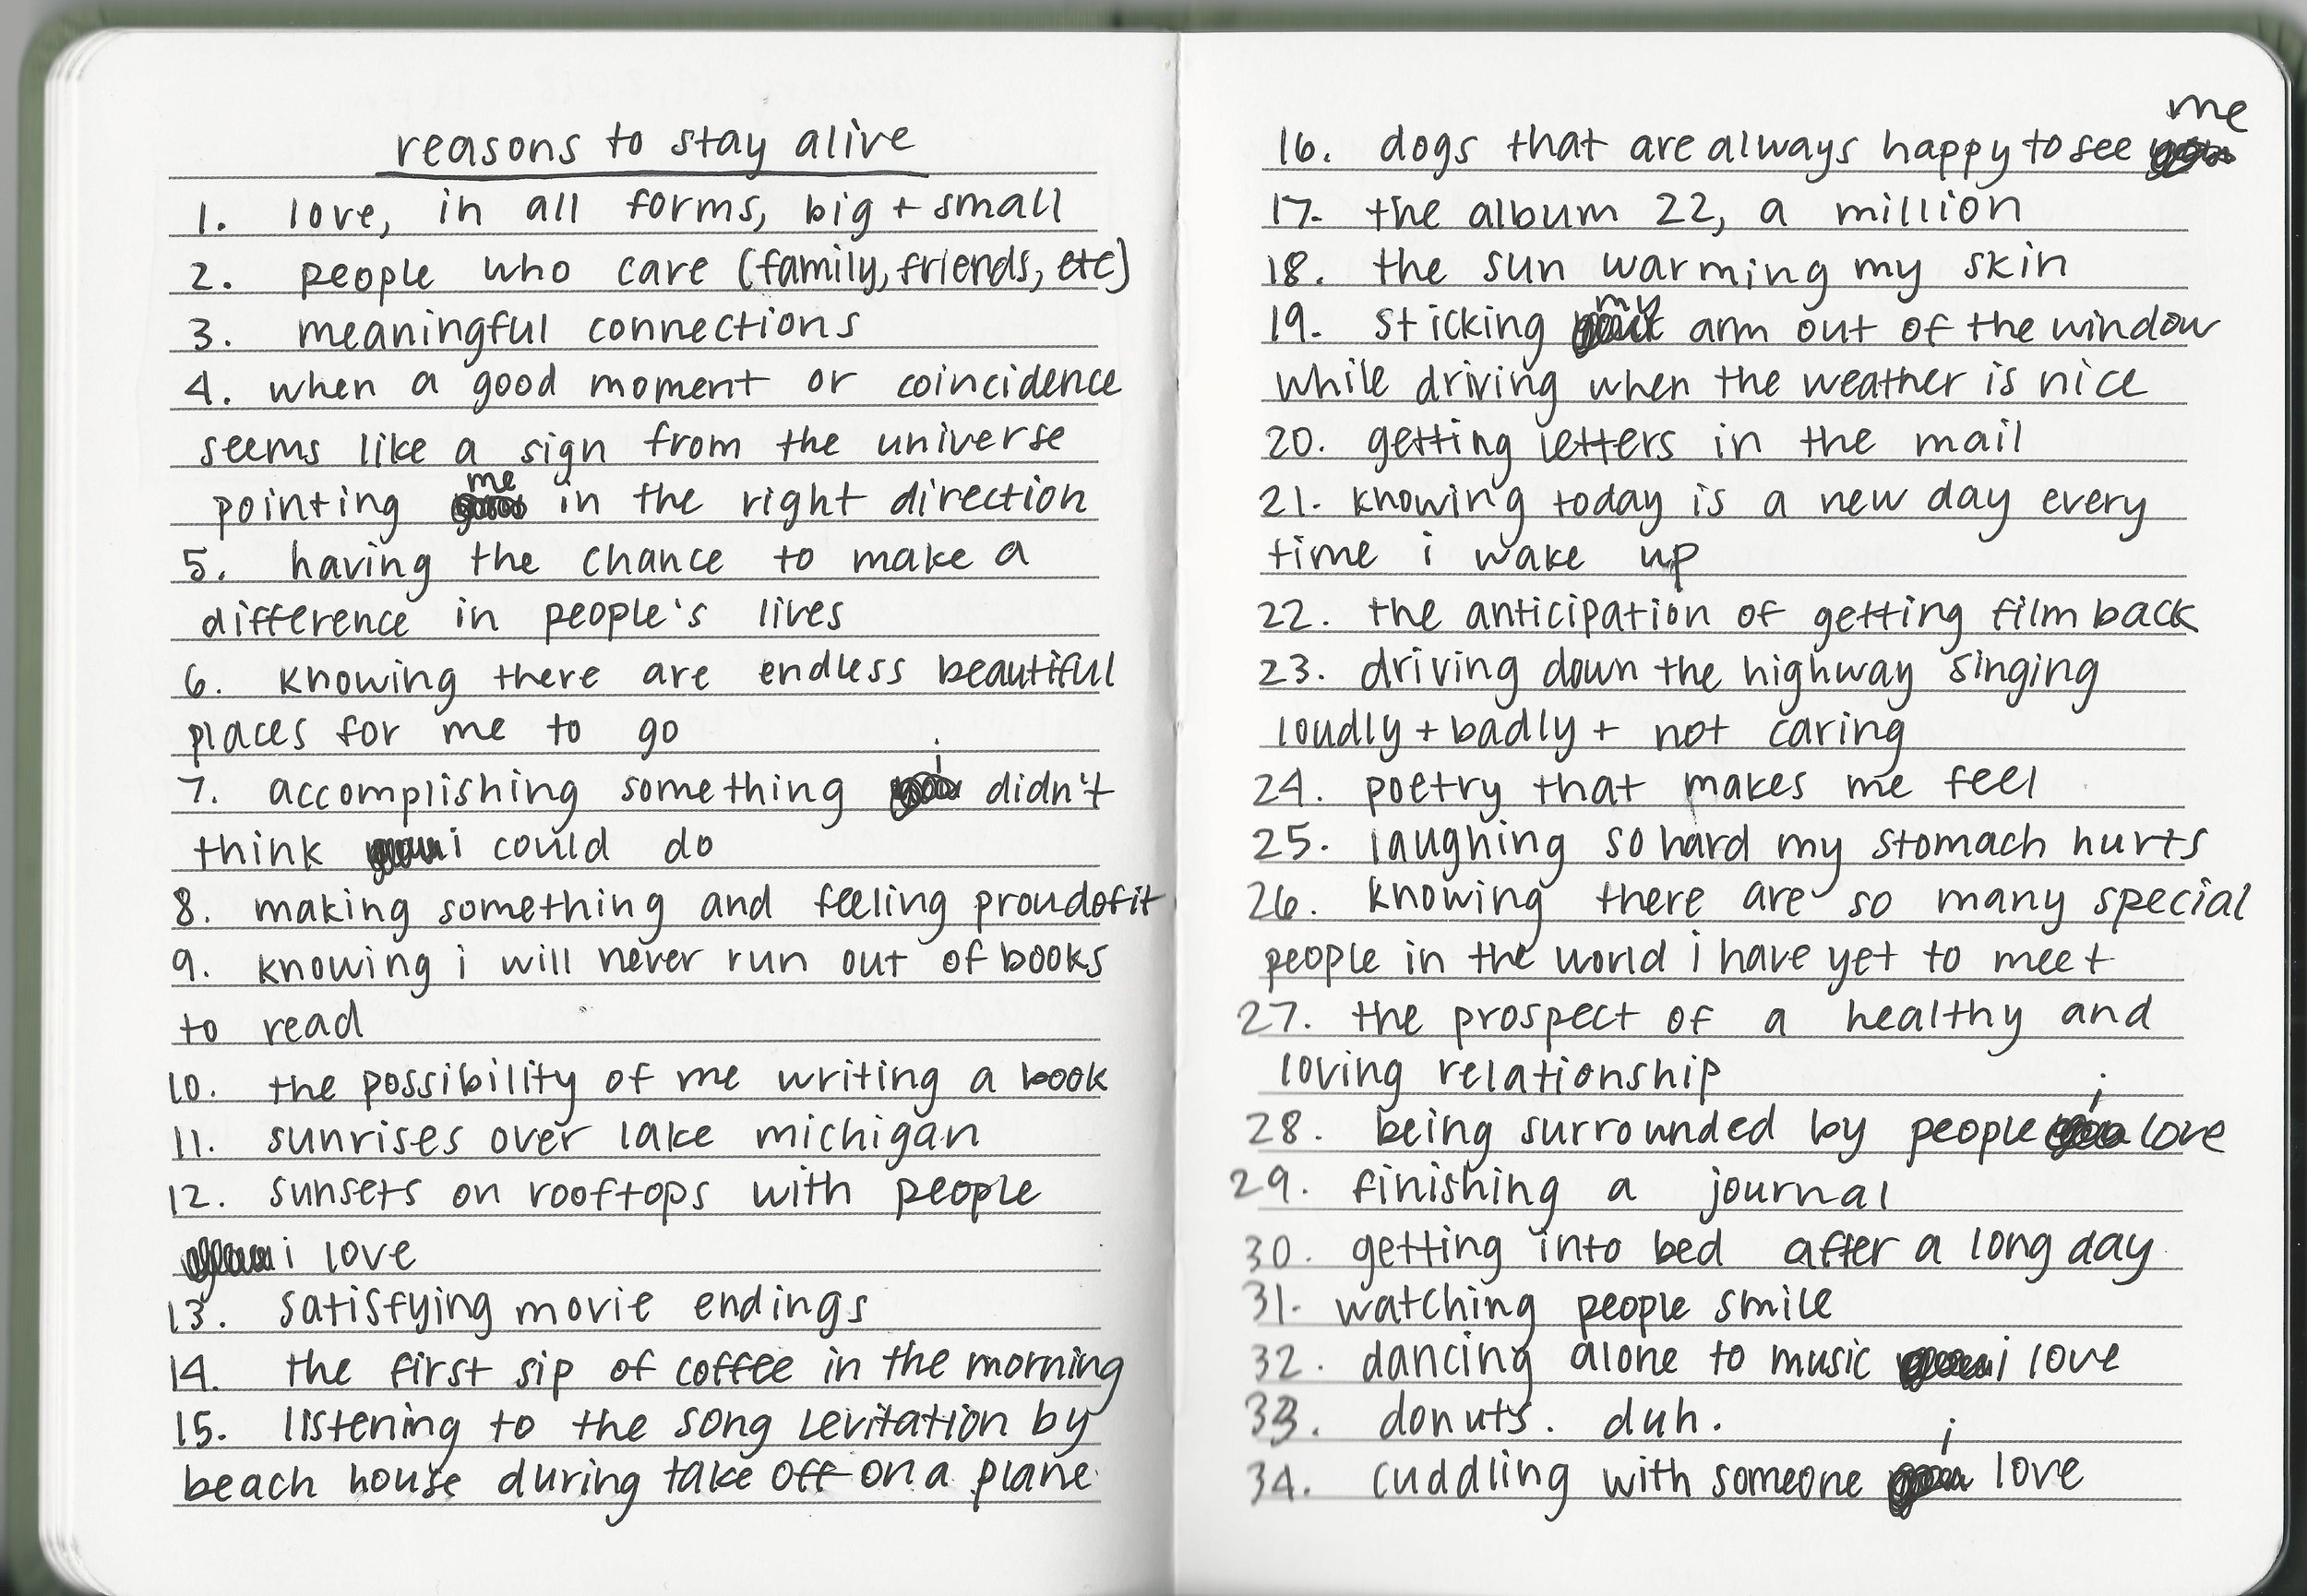 reasons to stay alive
1. love, in all forms, big + small
2. people who care (family, friends, etc)
3. meaningful connections
4. when a good moment or coincidence
seems like a sign from the universe
pointing me in the right direction
5. having the chance to make a
difference in people's lives
6. knowing there are endless beautiful
places for me to go
7. accomplishing something i didn't
think i could do
8. making something and feeling proud of it
9. knowing i will never run out of books
to read
10. the possibility of me writing a book
11. sunrises over lake michigan
12. sunsets on rooftops with people
i love
13. satisfying movie endings
14. the first sip of coffee in the morning
15. listening to the song levitation by
beach house during take off on a plane
16. dogs that are always happy to see me
17. the album 22, a million
18. the sun warming my skin
19. sticking my arm out of the window
while driving when the weather is nice
20. getting letters in the mail
21. knowing today is a new day every
time i wake up
22. the anticipation of getting film back
23. driving down the highway singing
loudly + badly + not caring
24. poetry that makes me feel
25. laughing so hard my stomach hurts
26. knowing there are so many special
people in the world i have yet to meet
27. the prospect of a healthy and
loving relationship
28. being surrounded by people i love
29. finishing a journal
30. getting into bed after a long day
31. watching people smile
32. dancing alone to music i love
33. donuts. duh.
34. cuddling with someone i love